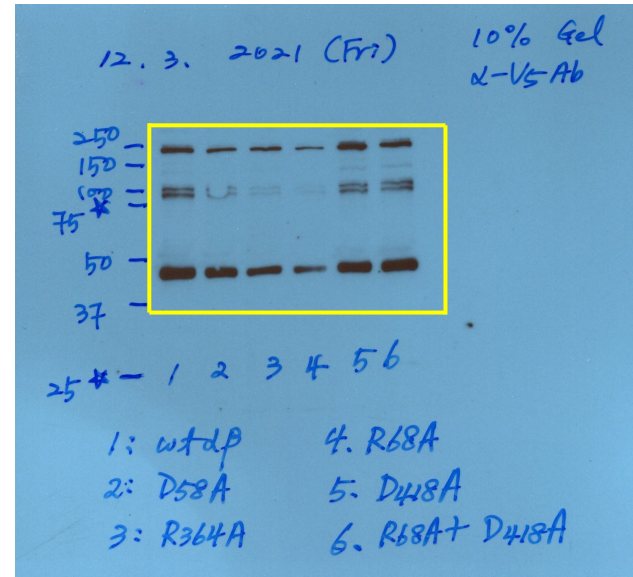 12. 3. 2021 (Fri)
10% Gel
α-V5 Ab
250 -
150 -
100 -
75 * -
50 -
37 -
25 * - 1 2 3 4 5 6
1: wtαβ
2: D58A
3: R364A
4. R68A
5. D418A
6. R68A+ D418A